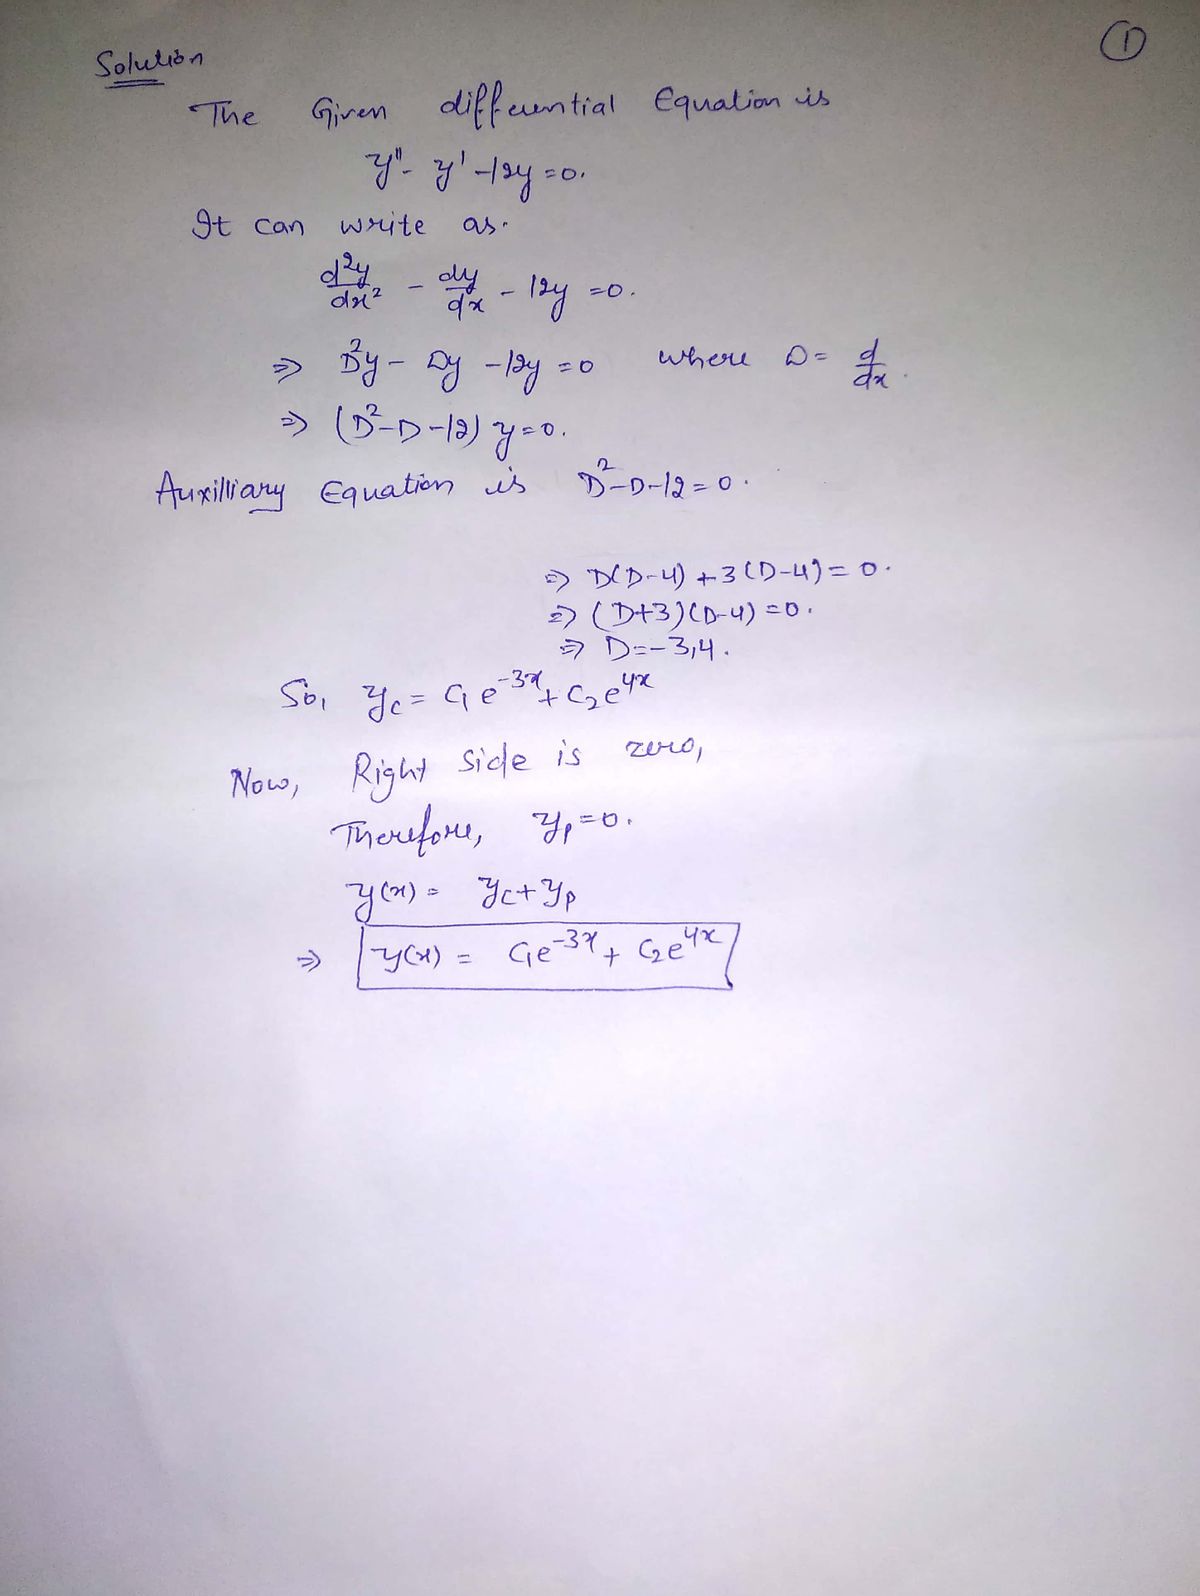 ①
Solution
The Given differential Equation is
y'' - y' - 12y = 0.
It can write as.
d²y/dx² - dy/dx - 12y = 0.
⇒ D²y - Dy - 12y = 0 where D = d/dx.
⇒ (D² - D - 12) y = 0.
Auxilliary Equation is D² - D - 12 = 0.
⇒ D(D-4) + 3(D-4) = 0.
⇒ (D+3)(D-4) = 0.
⇒ D = -3,4.
So, y_c = C₁e^{-3x} + C₂e^{4x}
Now, Right Side is zero,
Therefore, y_p = 0.
y(x) = y_c + y_p
⇒ y(x) = C₁e^{-3x} + C₂e^{4x}